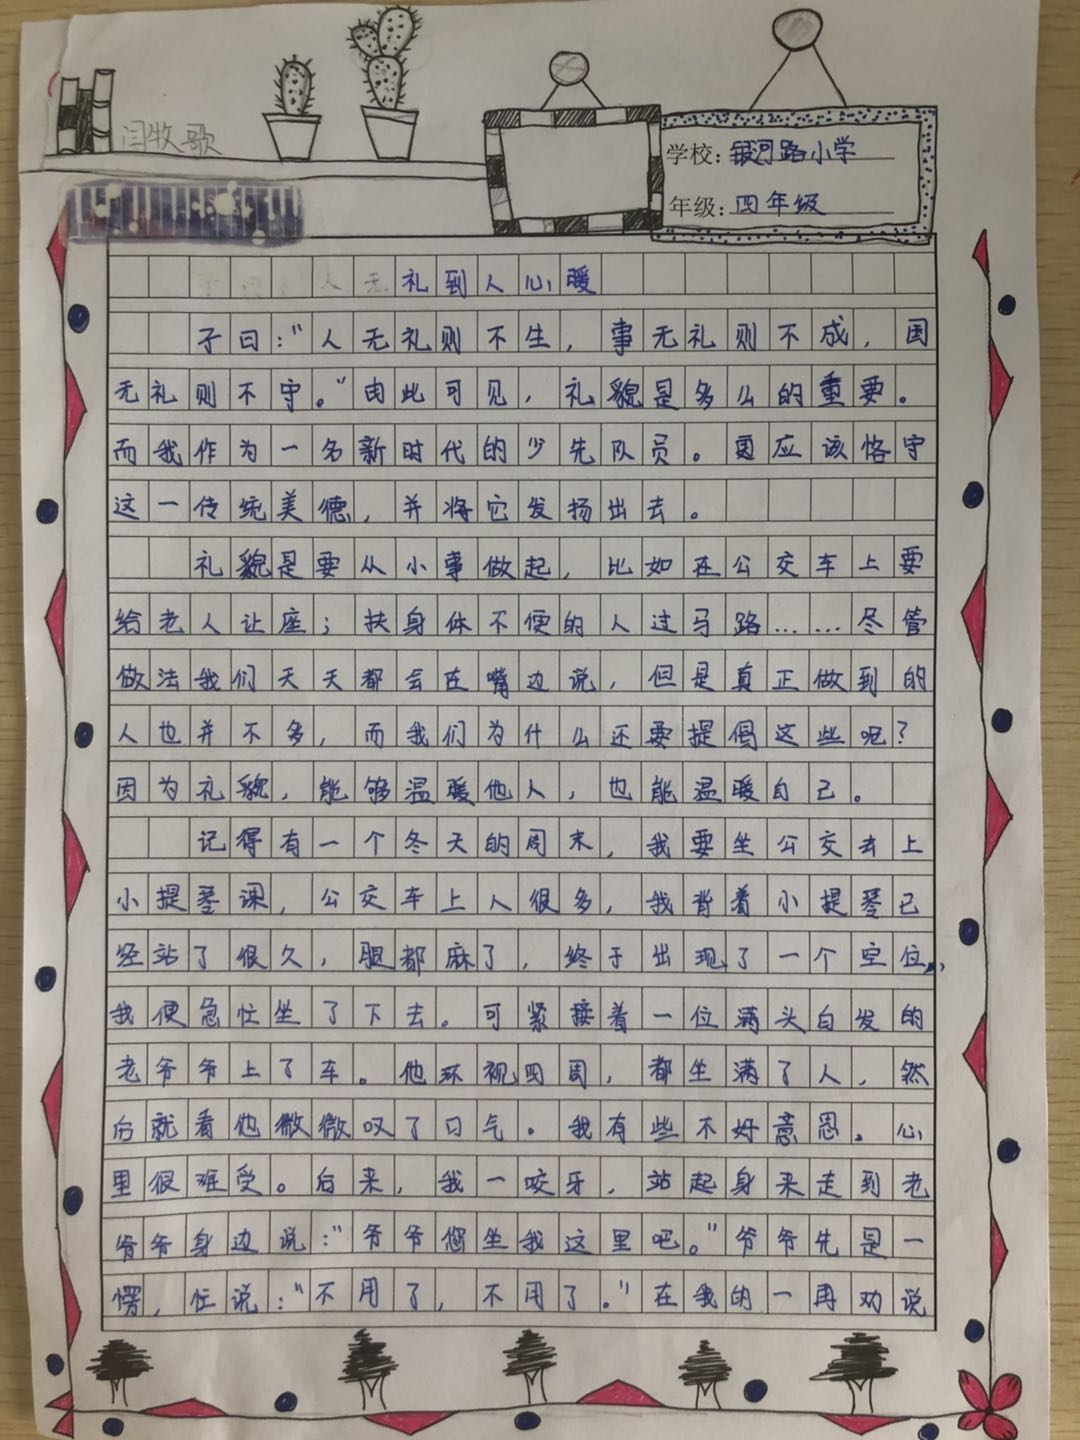 闫牧歌
学校：银河路小学
年级：四年级
礼到人心暖
子曰：“人无礼则不生，事无礼则不成，国
无礼则不守。”由此可见，礼貌是多么的重要。
而我作为一名新时代的少先队员。更应该恪守
这一传统美德，并将它发扬出去。
礼貌是要从小事做起，比如在公交车上要
给老人让座；扶身体不便的人过马路……尽管
做法我们天天都会在嘴边说，但是真正做到的
人也并不多，而我们为什么还要提倡这些呢？
因为礼貌，能够温暖他人，也能温暖自己。
记得有一个冬天的周末，我要坐公交去上
小提琴课，公交车上人很多，我背着小提琴已
经站了很久，腿都麻了，终于出现了一个空位，
我便急忙坐了下去。可紧接着一位满头白发的
老爷爷上了车。他环视四周，都坐满了人，然
后就看他微微叹了口气。我有些不好意思。心
里很难受。后来，我一咬牙，站起身来走到老
爷爷身边说：“爷爷您坐我这里吧。”爷爷先是一
愣，忙说：“不用了，不用了。”在我的一再劝说